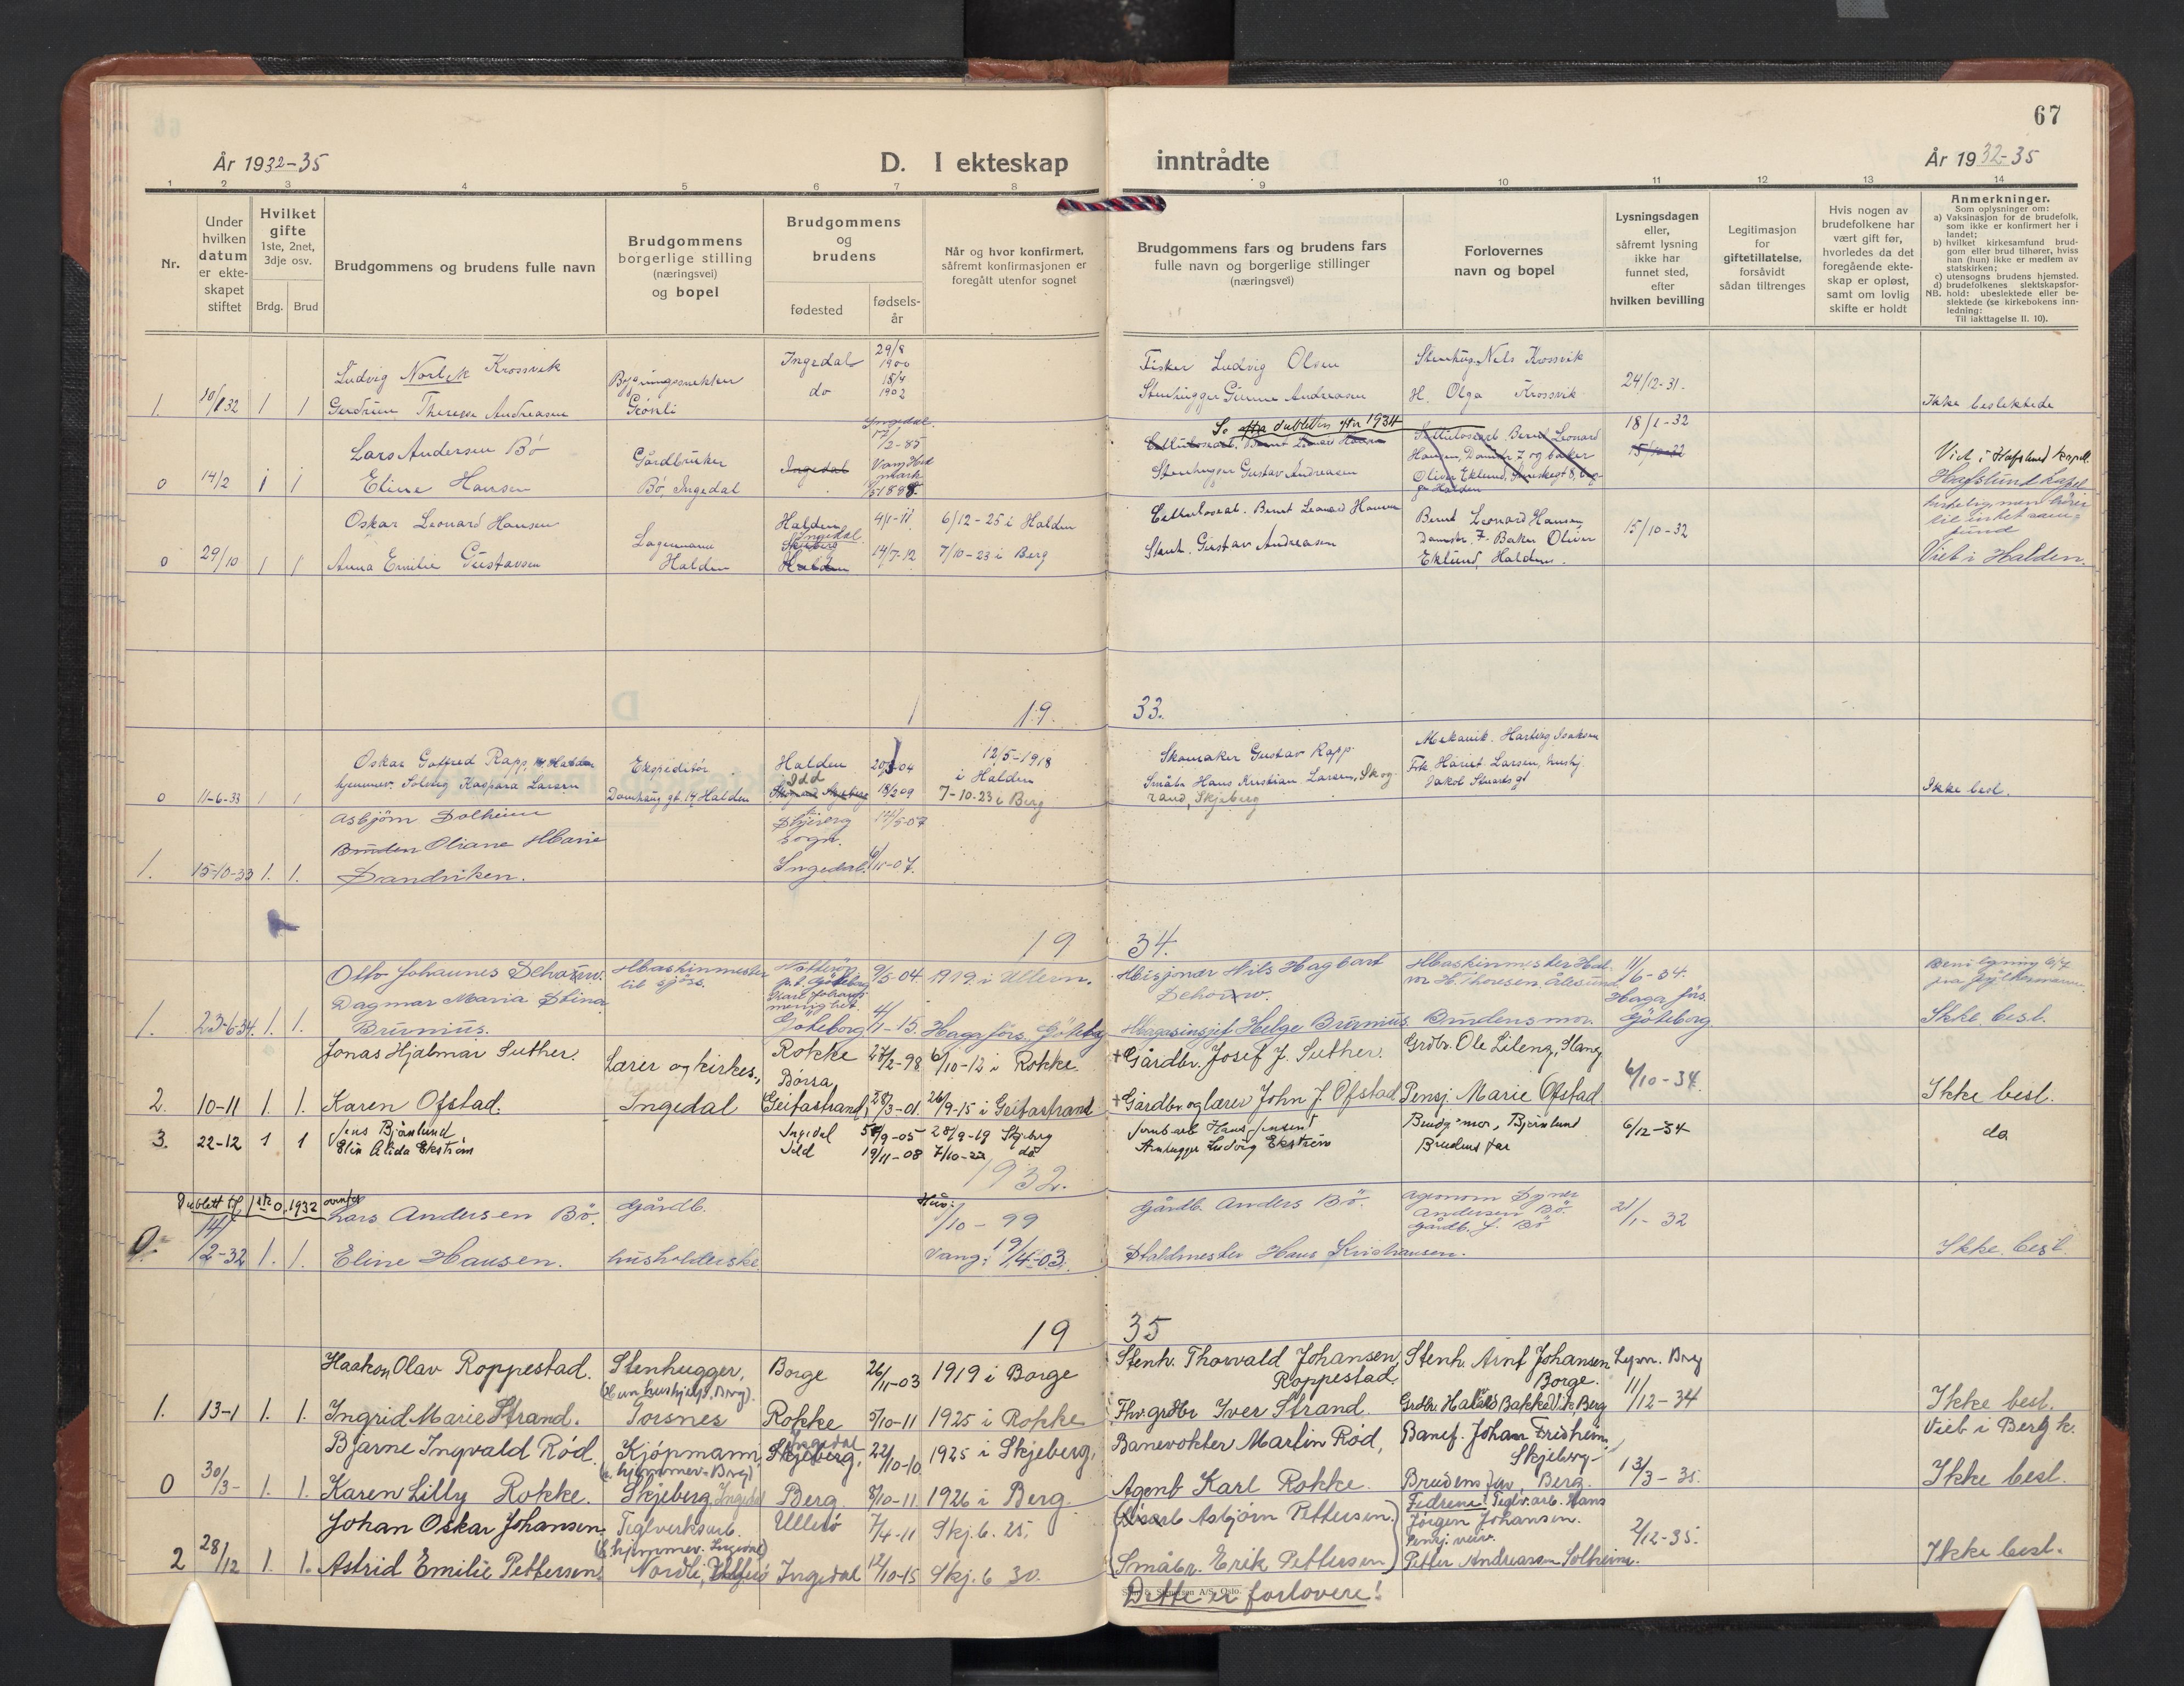 67
År 1932-35
D. I ekteskap inntrådte
År 1932-35
1 2 3 4 5 6 7 8 9 10 11 12 13 14
Nr.
Under hvilken datum er ekteskapet stiftet
Hvilket gifte 1ste, 2net, 3dje osv.
Brdg. Brud
Brudgommens og brudens fulle navn
Brudgommens borgerlige stilling (næringsvei) og bopel
Brudgommens og brudens
fødested
fødselsår
Når og hvor konfirmert, såfremt konfirmasjonen er foregått utenfor sognet
Brudgommens fars og brudens fars fulle navn og borgerlige stillinger (næringsvei)
Forlovernes navn og bopel
Lysningsdagen eller, såfremt lysning ikke har funnet sted, efter hvilken bevilling
Legitimasjon for giftetillatelse, forsåvidt sådan tiltrenges
Hvis nogen av brudefolkene har vært gift før, hvorledes da det foregående ekteskap er opløst, samt om lovlig skifte er holdt
Anmerkninger.
Som oplysninger om:
a) Vaksinasjon for de brudefolk, som ikke er konfirmert her i landet;
b) hvilket kirkesamfund brudgom eller brud tilhører, hviss han (hun) ikke er medlem av statskirken;
c) utensogns brudens hjemsted.
d) brudefolkenes slektskapsforhold: ubeslektede eller beslektede (se kirkebokens innledning:
NB.
Til iakttagelse II. 10).
Ludvig Norlek Krossvik Ingedal 29/8 1900 Fisker Ludvig Olsen Stenhug. Nels Krossvik
1. 10/1 32 1 1 Gerdrun Therese Andreasen Bygningssnekker do 15/4 1902 Stenhugger Gunne Andreasen H. Olga Krossvik 24/12-31. Ikke beslektede
Grönli
Se dubletten efter 1934
Lars Andersen Bö Gårdbruker Ingedal 17/2-85 18/1-32
0 14/2 1 1 Eline Hansen Bö, Ingedal Vang Hedmark Stenhugger Gustav Andreasen Viet i Hafslund kapell.
Hafslund kapel
Oskar Leonard Hansen Halden 4/1-11 6/12-25 i Halden Celluloseab. Bernt Leonard Hansen Bernt Leonard Hansen
0 29/10 1 1 Anna Emilie Gustavsen Lagermann Halden Ingedal 14/7-12 7/10-23 i Berg Stenh. Gustav Andreasen Damstr. 7. Baker Oliver Eklund, Halden. 15/10-32 Viet i Halden.
19 33.
Oskar Gotfred Rapp, Halden Ekspeditör Halden 20/3-04 12/5-1918 i Halden Skomaker Gustav Rapp. Mekanik. Hartvig Isaksen
0 11-6-33 1 1 hjemmev. Solveig Kaspara Larsen Damhaug gt. 14 Halden Idd 18/2 09 7-10-23 i Berg Småbr. Hans Kristian Larsen, Skograud, Skjeberg Frk. Hariet Larsen, hushj. Jakob Stuarts gt Ikke besl.
Asbjörn Solheim Skjeberg sogn. 14/5-07
1. 15-10-33 1. 1. Bruden Oliane Marie Sandviken. Ingedal. 6/11-07.
19 34.
Otto Johannes Schou w. Maskinmester til sjöss. 9/5-04 1919 i Ullern. Misjonær Nils Hagbart Schou w. Maskinmester Halvor H. Thoresen, Ålesund. 11/6-34.
1. 23-6-34. 1. 1. Dagmar Maria Stina Brunius. Göteborg 4/1-15. Haga förs. Göteborg Magasinsjef Helge Brunius. Brudens mor. Haga förs. Göteborg Ikke besl.
Jonas Hjalmar Suther. Lærer og kirkes., Rokke 27/2-98 6/10-12 i Rokke. + Gårdbr. Josef J. Suther. Grdbr. Ole Lileng, Hang
2. 10-11 1. 1. Karen Ofstad. Ingedal Börsa, Geitastrand, 28/3-01. 26/9-15 i Geitastrand + Gårdbr. og lærer John J. Ofstad Pensj. Marie Ofstad 6/10-34. Ikke besl.
3. 22-12 1 1 Jens Björnlund Ingedal 5/9-05 28/9-19 Skjeberg Jernbarb Hans Jensen Brudg mor, Björnlund 6/12-34 do.
Elin Alida Ekström Idd 19/11-08 7/10-22 do Stenhugger Ludvig Ekström Brudens far
1932.
Dublett til 1ste 0, 1932 ovenfor
Lars Andersen Bö. Gårdb. 1/10-99 Gårdb. Anders Bö. Agronom Andersen Bö. Gårdb. J. Bö 21/1-32
0. 14/2-32 1. 1. Eline Hansen. husholderske. Vang: 19/4-03. Staldmester Hans Kristiansen. Ikke besl.
19 35
Haakon Olav Roppestad. Stenhugger, Borge 26/11-03 1919 i Borge Stenh. Thorvald Johansen, Roppestad. Stenh. Arnt Johansen Borge. Lysn. Berg 11/12-34
1. 13-1 1. 1. Ingrid Marie Strand. (Hun hushjelp. Berg). Torsnes Rokke 5/10-11 1925 i Rokke Fhv. grdbr Iver Strand. Ikke besl.
Viet i Berg k.
Bjarne Ingvald Röd. Kjöpmann, Skjeberg, Ingedal 22/10-10 1925 i Skjeberg, Banevokter Martin Röd, Banef. Johan Fridheim, Skjeberg
0 30/3- 1. 1. Karen Lilly Rokke. Skjeberg, Ingedal Berg. 8/10-11. 1926 i Berg. Agent Karl Rokke. Brudens far, Berg. 13/3-35. Ikke besl.
Johan Oskar Johansen. Teglverksarb. Ullerö 7/4-11 Skj. b. 25. Asbjörn Pettersen. Fedrene: Teglv. arb. Hans Jörgen Johansen. 2/12-35.
2 28/12 1. 1. Astrid Emilie Pettersen. (b. hjemmev. Ingedal) Nordli, Ingedal 12/10-15 Skj. b 30. Småbr. Erik Pettersen Petter Andreassen Solheim. Ikke besl.
Dette er forlovere!